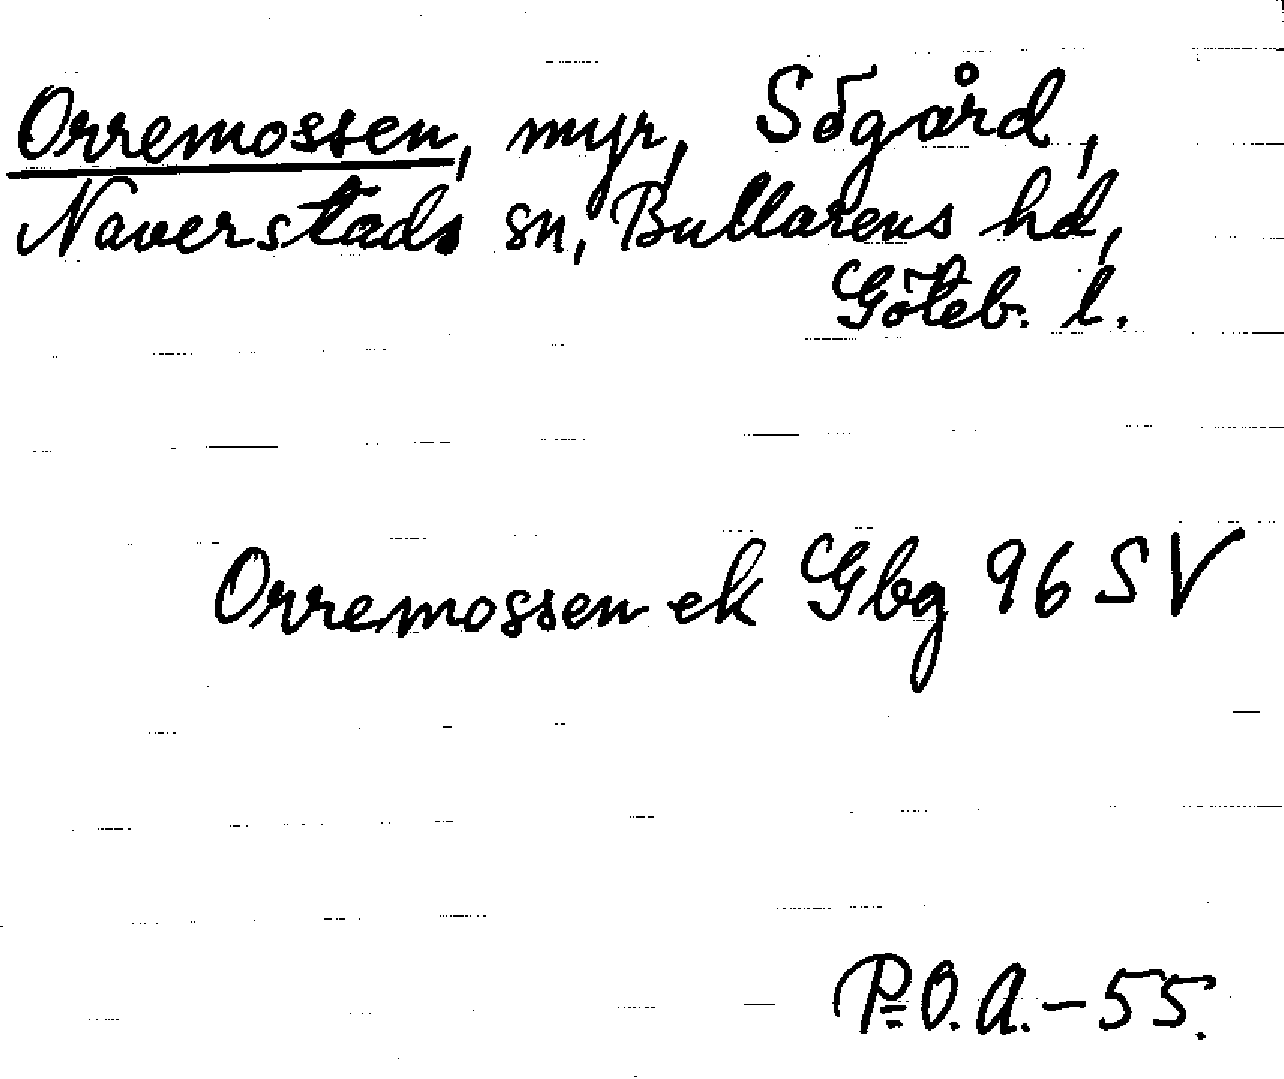 Orremossen, myr, Sögård,
Naverstads sn, Bullarens hd,
Göteb. l.
Orremossen ek Gbg 96 SV
P=O.A.-55.